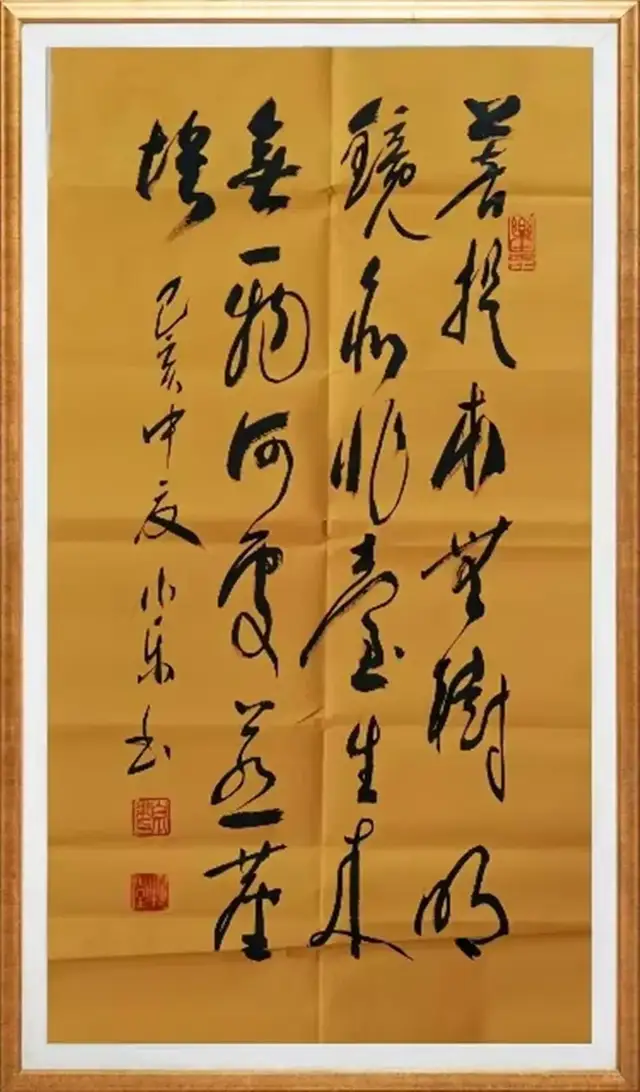 菩提本無樹明
鏡亦非臺生來
無一物何處惹塵
埃 己亥中夏小乐书